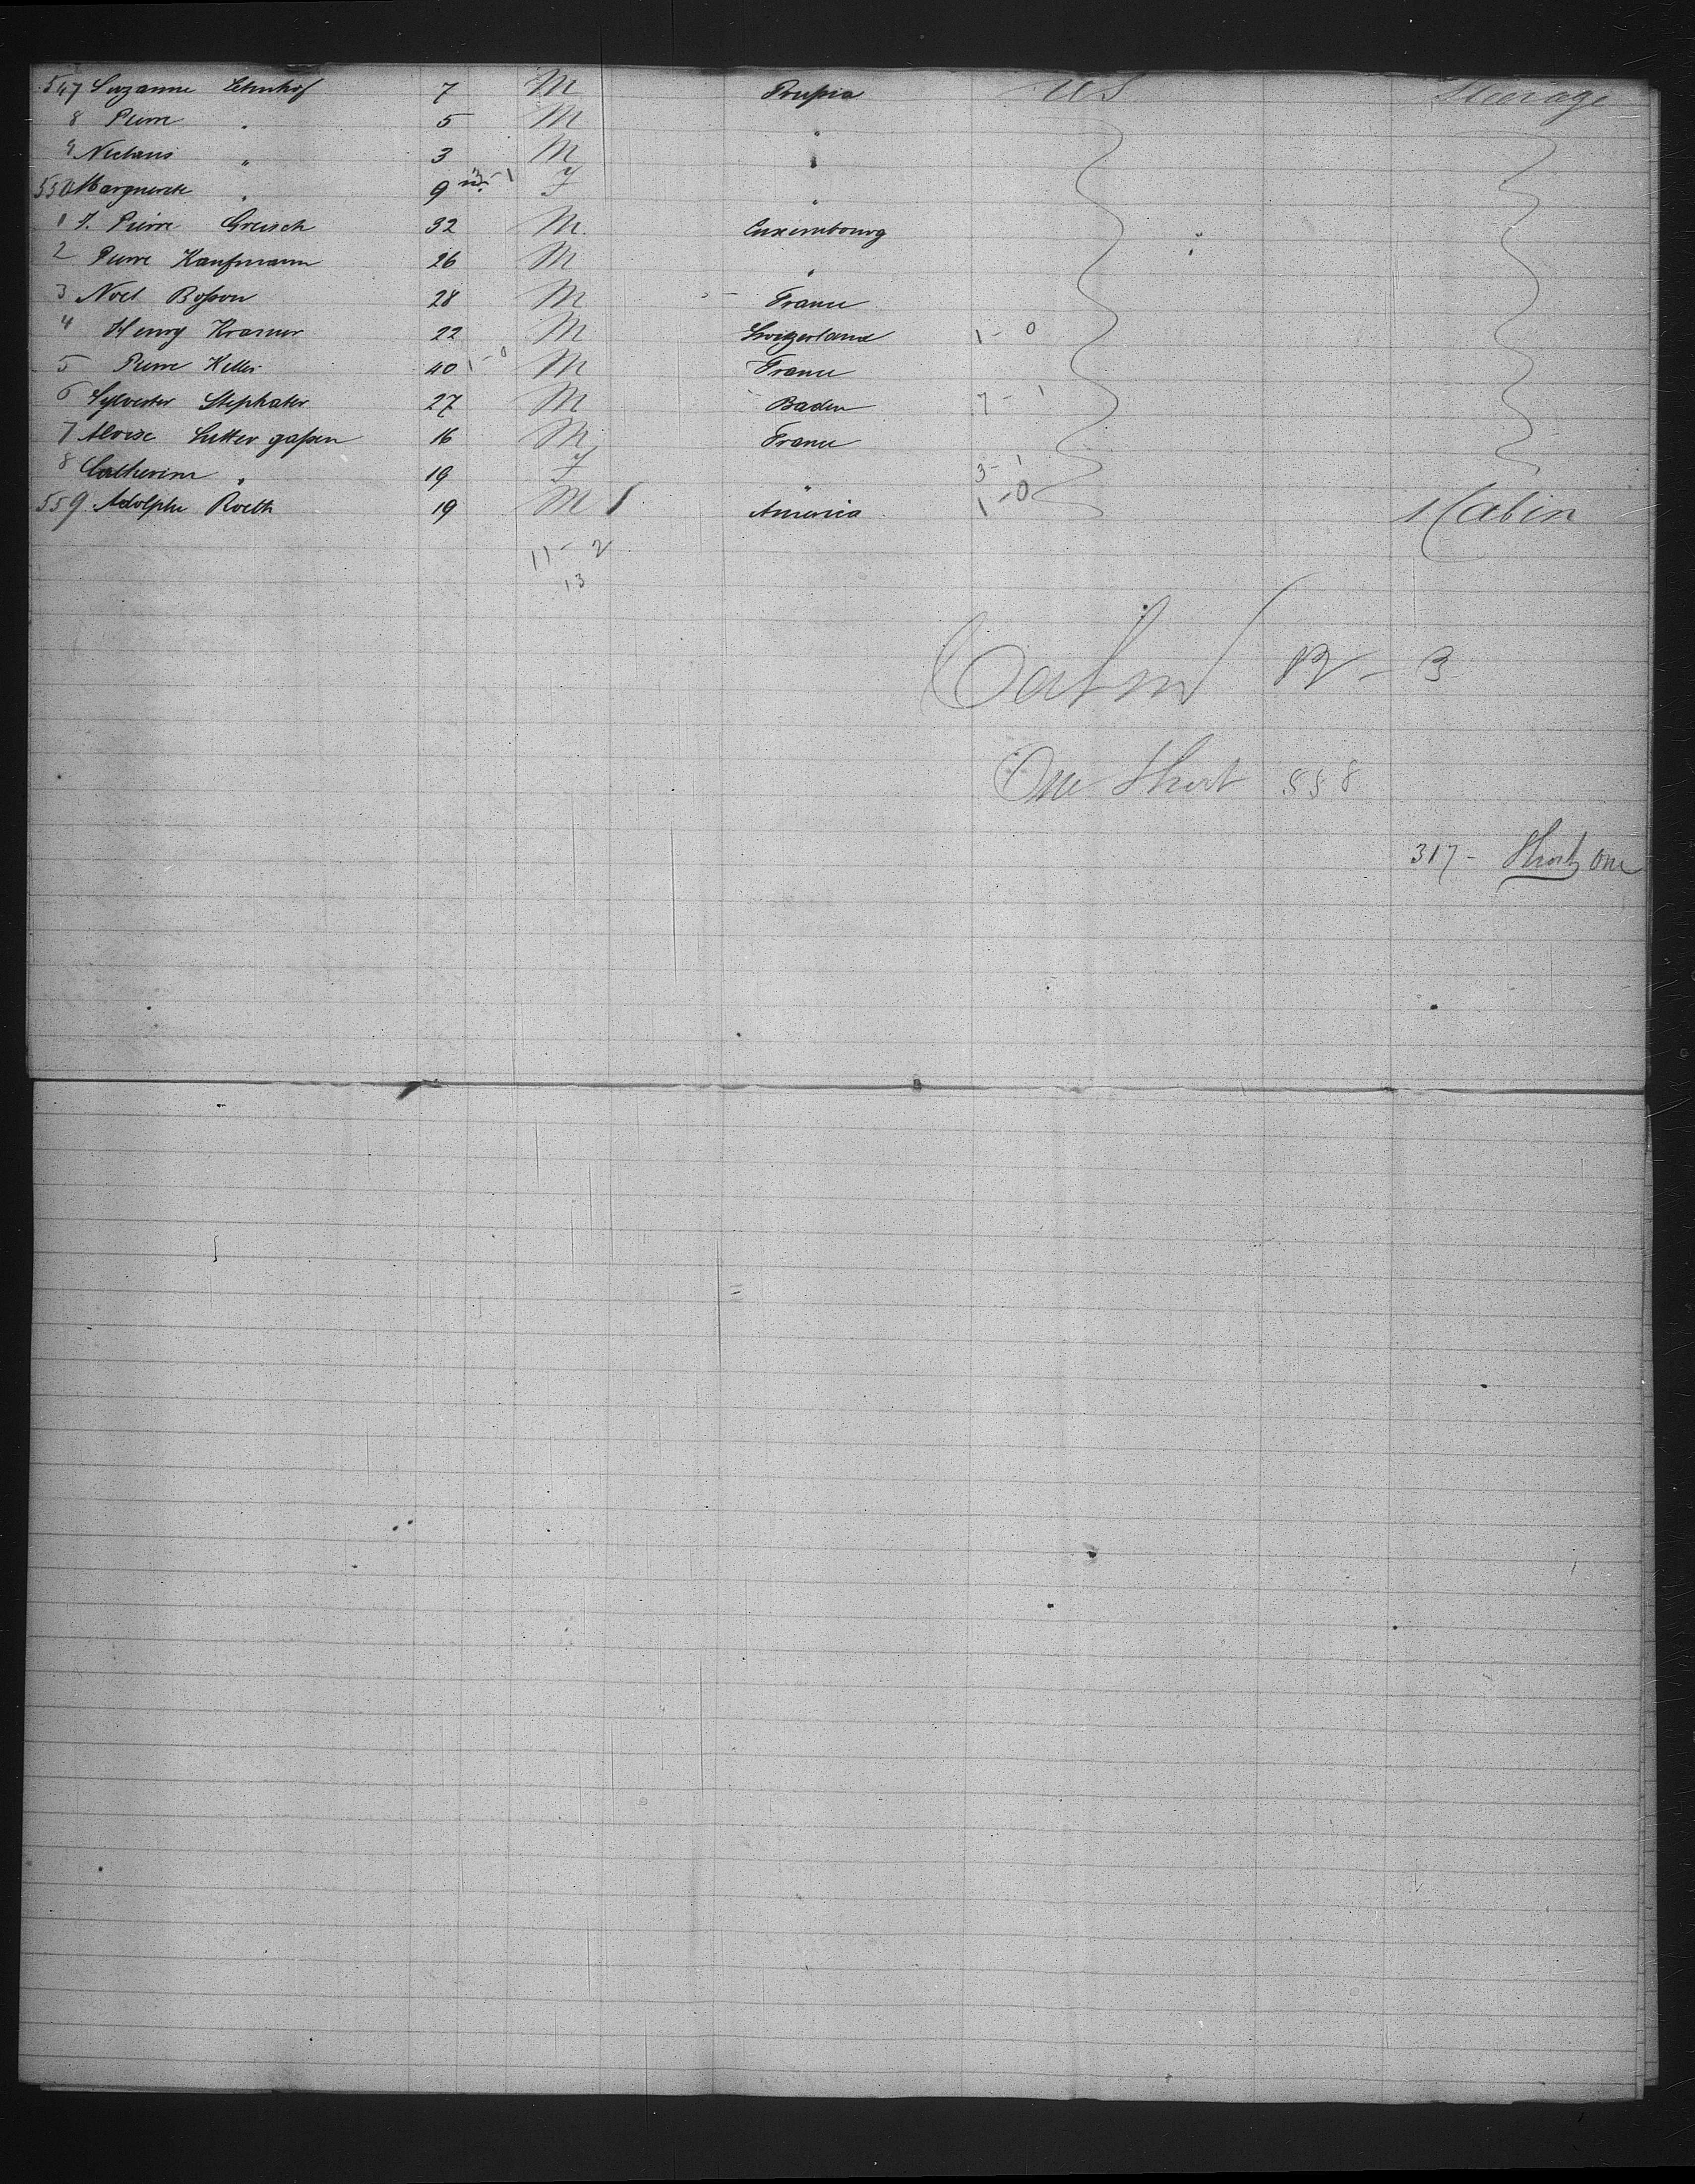 547 Suzanne Ehnhof 7 M Prussia U S Steerage
8 Pierre " 5 M "
9 Niclaus " 3 M "
550 Marguerete " 9 m. 3-1 F "
1 J. Pierre Greisch 32 M Luxembourg
2 Pierre Kaufmann 26 M "
3 Noel Bosson 28 M France
4 Henry Kramer 22 M Switzerland 1-0
5 Pierre Keller 40 1-0 M France
6 Sylvester Stephater 27 M Baden 7-1
7 Aloise Sutter gassen 16 M France
8 Catherine " 19 F " 3-1
559 Adolphe Roeth 19 M 1 America 1-0 1 Cabin
11-2
13
Cabin 12-3
One Short 558
317- Short one